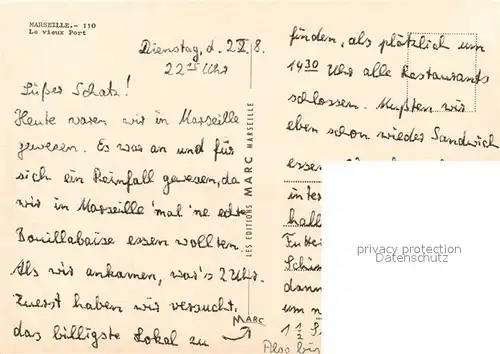 MARSEILLE.- 110
Le vieux Port
Dienstag, d. 2.X.8.
22 15 Uhr
Süßer Schatz!
Heute waren wir in Marseille
gewesen. Es war an und für
sich ein Reinfall gewesen, da
wir in Marseille 'mal 'ne echte
Bouillabaise essen wollten.
Als wir ankamen, war's 2 Uhr.
Zuerst haben wir versucht,
das billigste Lokal zu
LES EDITIONS MARC MARSEILLE
MARC
finden, als plötzlich um
14 30 Uhr alle Restaurants
schlossen. Mußten wir
eben schon wieder Sandwich
essen
inter
hall
dann
um
1 1/2
Also bis
privacy protection